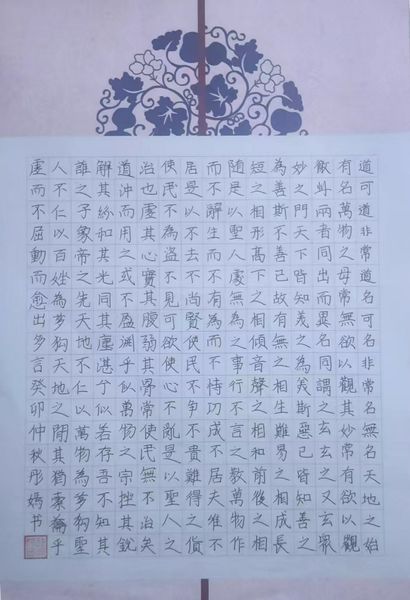 道可道非常道名可名非常名無名天地之始
有名萬物之母常無欲以觀其妙常有欲以觀
徼此兩者同出而異名同謂之玄玄之又玄眾
妙之門天下皆知美之為美斯惡已皆知善之
為善斯不善已故有無之相生難易之相成長
短之相形高下之相傾音聲之相和前後之相
随是以聖人處無為之事行不言之教萬物作
而不辭生而不有為而不恃功成不居夫維不
居是以不去不尚賢使民不争不貴難得之貨
使民不為盗不見可欲使心不亂是以聖人之
治也虛其心實其腹弱其骨常使民無不治矣
道沖而用之或不盈淵乎似萬物之宗挫其銳
解其紛和其光同其塵湛兮似若存吾不知其
誰之子象帝之先天地不仁以萬物為芻狗聖
人不仁以百姓為芻狗天地之間其猶橐籥乎
虛而不屈動而愈出多言癸卯仲秋彤嫣书